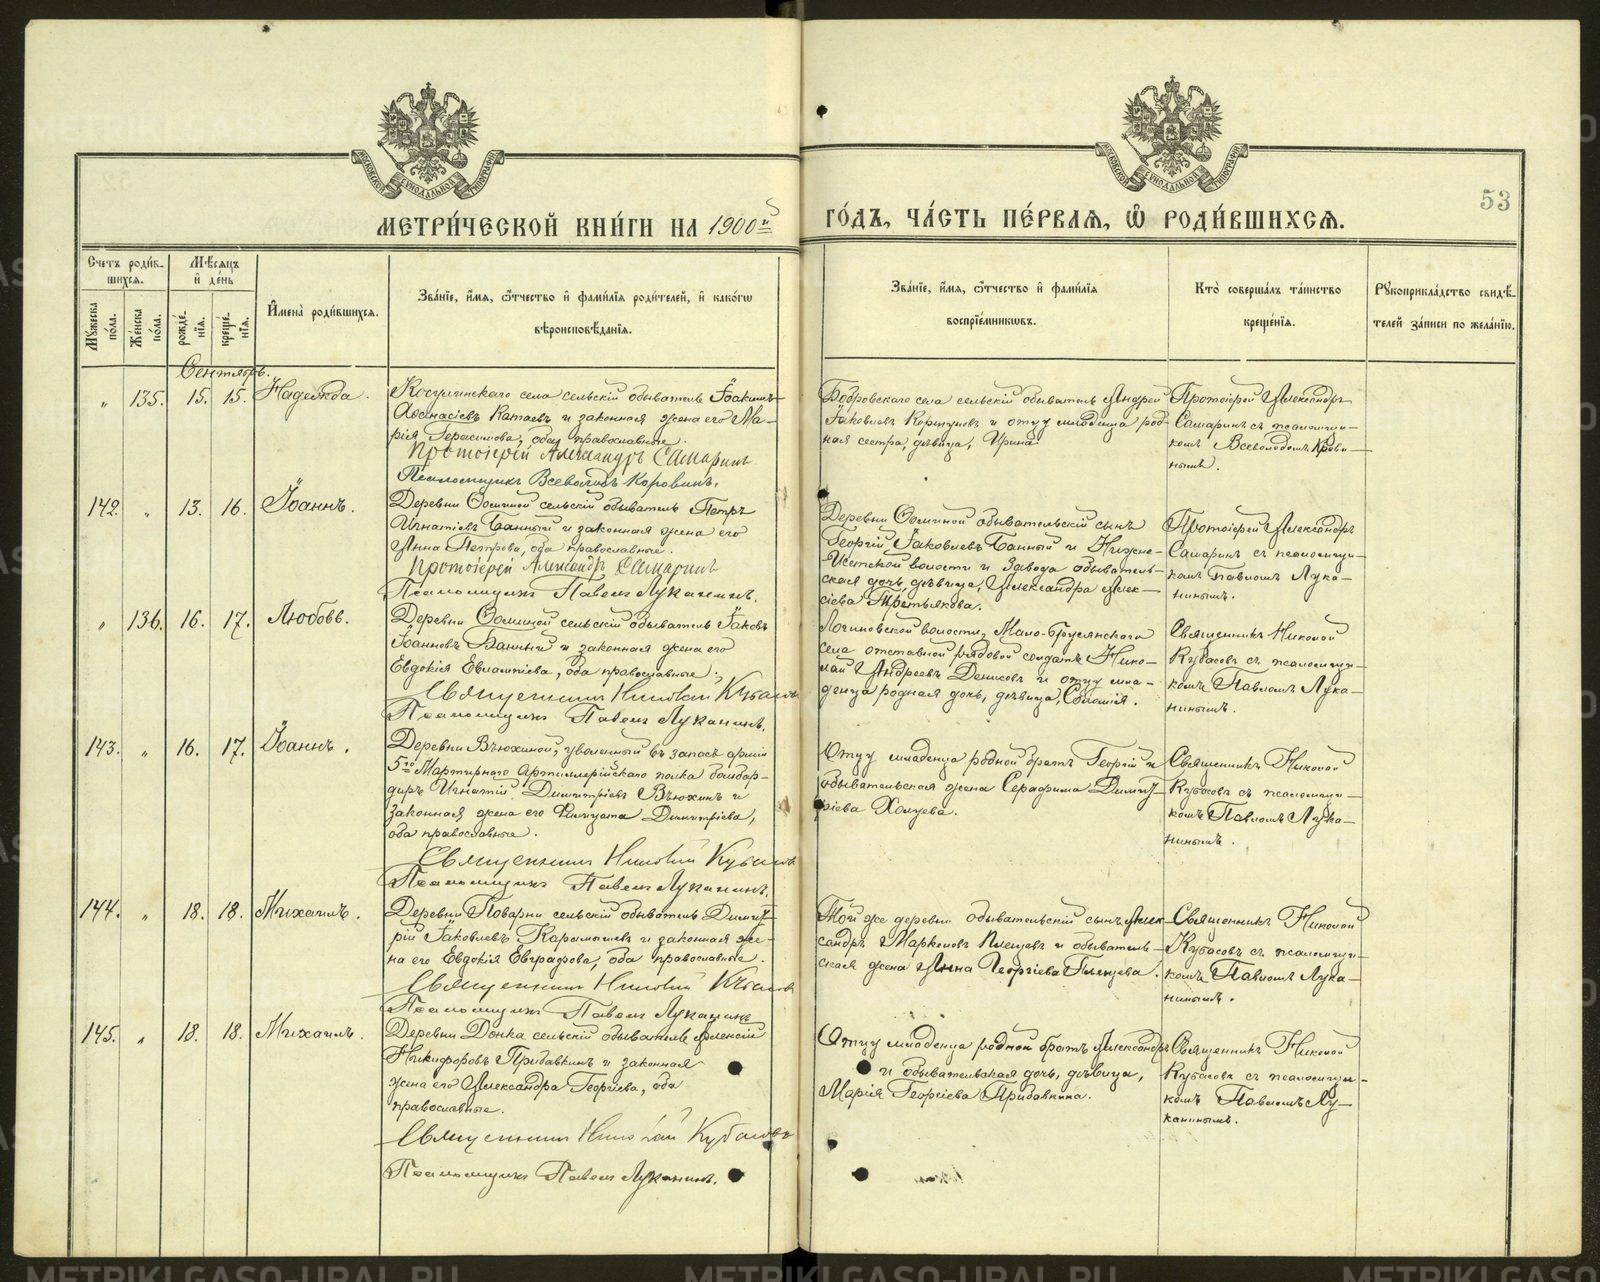 МЕТРИ́ЧЕСКОЙ КНИ́ГИ НА 1900й
ГО́ДЪ, ЧА́СТЬ ПЕ́РВАѦ, Ѽ РОДИ́ВШИХСѦ.
53
МОСКОВСКОЙ СУНОДАЛЬНОЙ ТИПОГРАФІИ
МОСКОВСКОЙ СУНОДАЛЬНОЙ ТИПОГРАФІИ
Счетъ роди́в-
шихся.
Мѣ́сяцъ
и́ де́нь
Му́жеска по́ла.
Же́нска по́ла.
рожде́-нїя.
креще́-нїя.
И́мена̀ роди́вшихся.
Зва́нїе, и́мя, ѻ́тчество и́ фами́лїя роди́телей, и́ како́гѡ
вѣроисповѣ́данїя.
Зва́нїе, и́мя, ѻ́тчество и́ фами́лїя
воспрїе́мниковъ.
Кто̀ соверша́лъ та́инство
креще́нїя.
Рꙋкоприкла́дство свидѣ́-
телей за́писи по жела́нїю.
Сентябрь.
„ 135. 15. 15. Надежда.
села сельскій обыватель Іоакимъ
Аѳанасіевъ Катаевъ и законная жена его Ма-
рія Герасимова, оба православные.
Протоіерей Александръ Самаринъ
Псаломщикъ Всеволодъ Коровинъ.
Бобровскаго села сельскій обыватель Андрей
Іаковлевъ Коршуновъ и отцу младенца род-
ная сестра, дѣвица, Ирина
Протоіерей Александръ
Самаринъ съ псаломщи-
комъ Всеволодомъ Крови-
нымъ.
142. „ 13. 16. Іоаннъ.
Деревни сельскій обыватель Петръ
Игнатіевъ Банный и законная жена его
Анна Петрова, оба православные.
Протоіерей Александръ Самаринъ
Псаломщикъ Павелъ Луканинъ.
Деревни обывательскій сынъ
Георгій Іаковлевъ Банный и Нижне-
Исетской волости и завода обыватель-
ская дочь, дѣвица, Александра Алек-
сіева Третьякова.
Протоіерей Александръ
Самаринъ съ псаломщи-
комъ Павломъ Лука-
нинымъ.
„ 136. 16. 17. Любовь.
Деревни сельскій обыватель Іаковъ
Іоанновъ Банный и законная жена его
Евдокія Евлампіева, оба православные.
Священникъ Николай Кубасовъ
Псаломщикъ Павелъ Луканинъ.
Логиновской волости, Мало-Брусянскаго
села отставной рядовой солдатъ Нико-
лай Андреевъ Денисовъ и отцу мла-
денца родная дочь, дѣвица,
Священникъ Николай
Кубасовъ съ псаломщи-
комъ Павломъ Лука-
нинымъ.
143. „ 16. 17. Іоаннъ.
Деревни Вьюхиной, уволенный въ запасъ арміи
5го Мартирнаго Артиллерійскаго полка бомбар-
диръ Игнатій Димитріевъ Вьюхинъ и
законная жена его Димитріева,
оба православные.
Священникъ Николай Кубасовъ
Псаломщикъ Павелъ Луканинъ.
Отцу младенца родной братъ Георгій и
обывательская жена Серафима Димит-
ріева
Священникъ Николай
Кубасовъ съ псаломщи-
комъ Павломъ Лука-
нинымъ.
144. „ 18. 18. Михаилъ.
Деревни Поварни сельскій обыватель Димит-
рій Іаковлевъ Карамышевъ и законная же-
на его Евдокія Евграфова, оба православные.
Священникъ Николай Кубасовъ
Псаломщикъ Павелъ Луканинъ
Той же деревни обывательскій сынъ Алек-
сандръ Маркеловъ Плещевъ и обыватель-
ская жена Анна Георгіева
Священникъ Николай
Кубасовъ съ псаломщи-
комъ Павломъ Лука-
нинымъ.
145. „ 18. 18. Михаилъ.
Деревни Донка сельскій обыватель Алексій
Никифоровъ Придавкинъ и законная
жена его Александра Георгіева, оба
православные.
Священникъ Николай Кубасовъ
Псаломщикъ Павелъ Луканинъ.
Отцу младенца родной братъ Александръ
и обывательская дочь, дѣвица,
Марія Георгіева Придавкина.
Священникъ Николай
Кубасовъ съ псаломщи-
комъ Павломъ Лу-
канинымъ.
METRIKI.GASO-URAL.RU